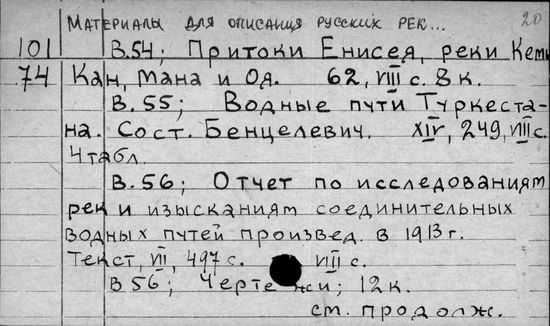 Материалы для описания русских рек... 20
101 В.54; Притоки Енисея, реки Кемь
74 Кан, Мана и Оя. 62, VIII с. 8 к.
В.55; Водные пути Туркеста-
на. Сост. Бенцелевич. XIV, 249, VIII с.
4 табл.
В.56; Отчет по исследованиям
рек и изысканиям соединительных
водных путей произвед. в 1913 г.
Текст, VII, 497 с. VIII с.
В 56; Чертежи; 12 к.
см. продолж.